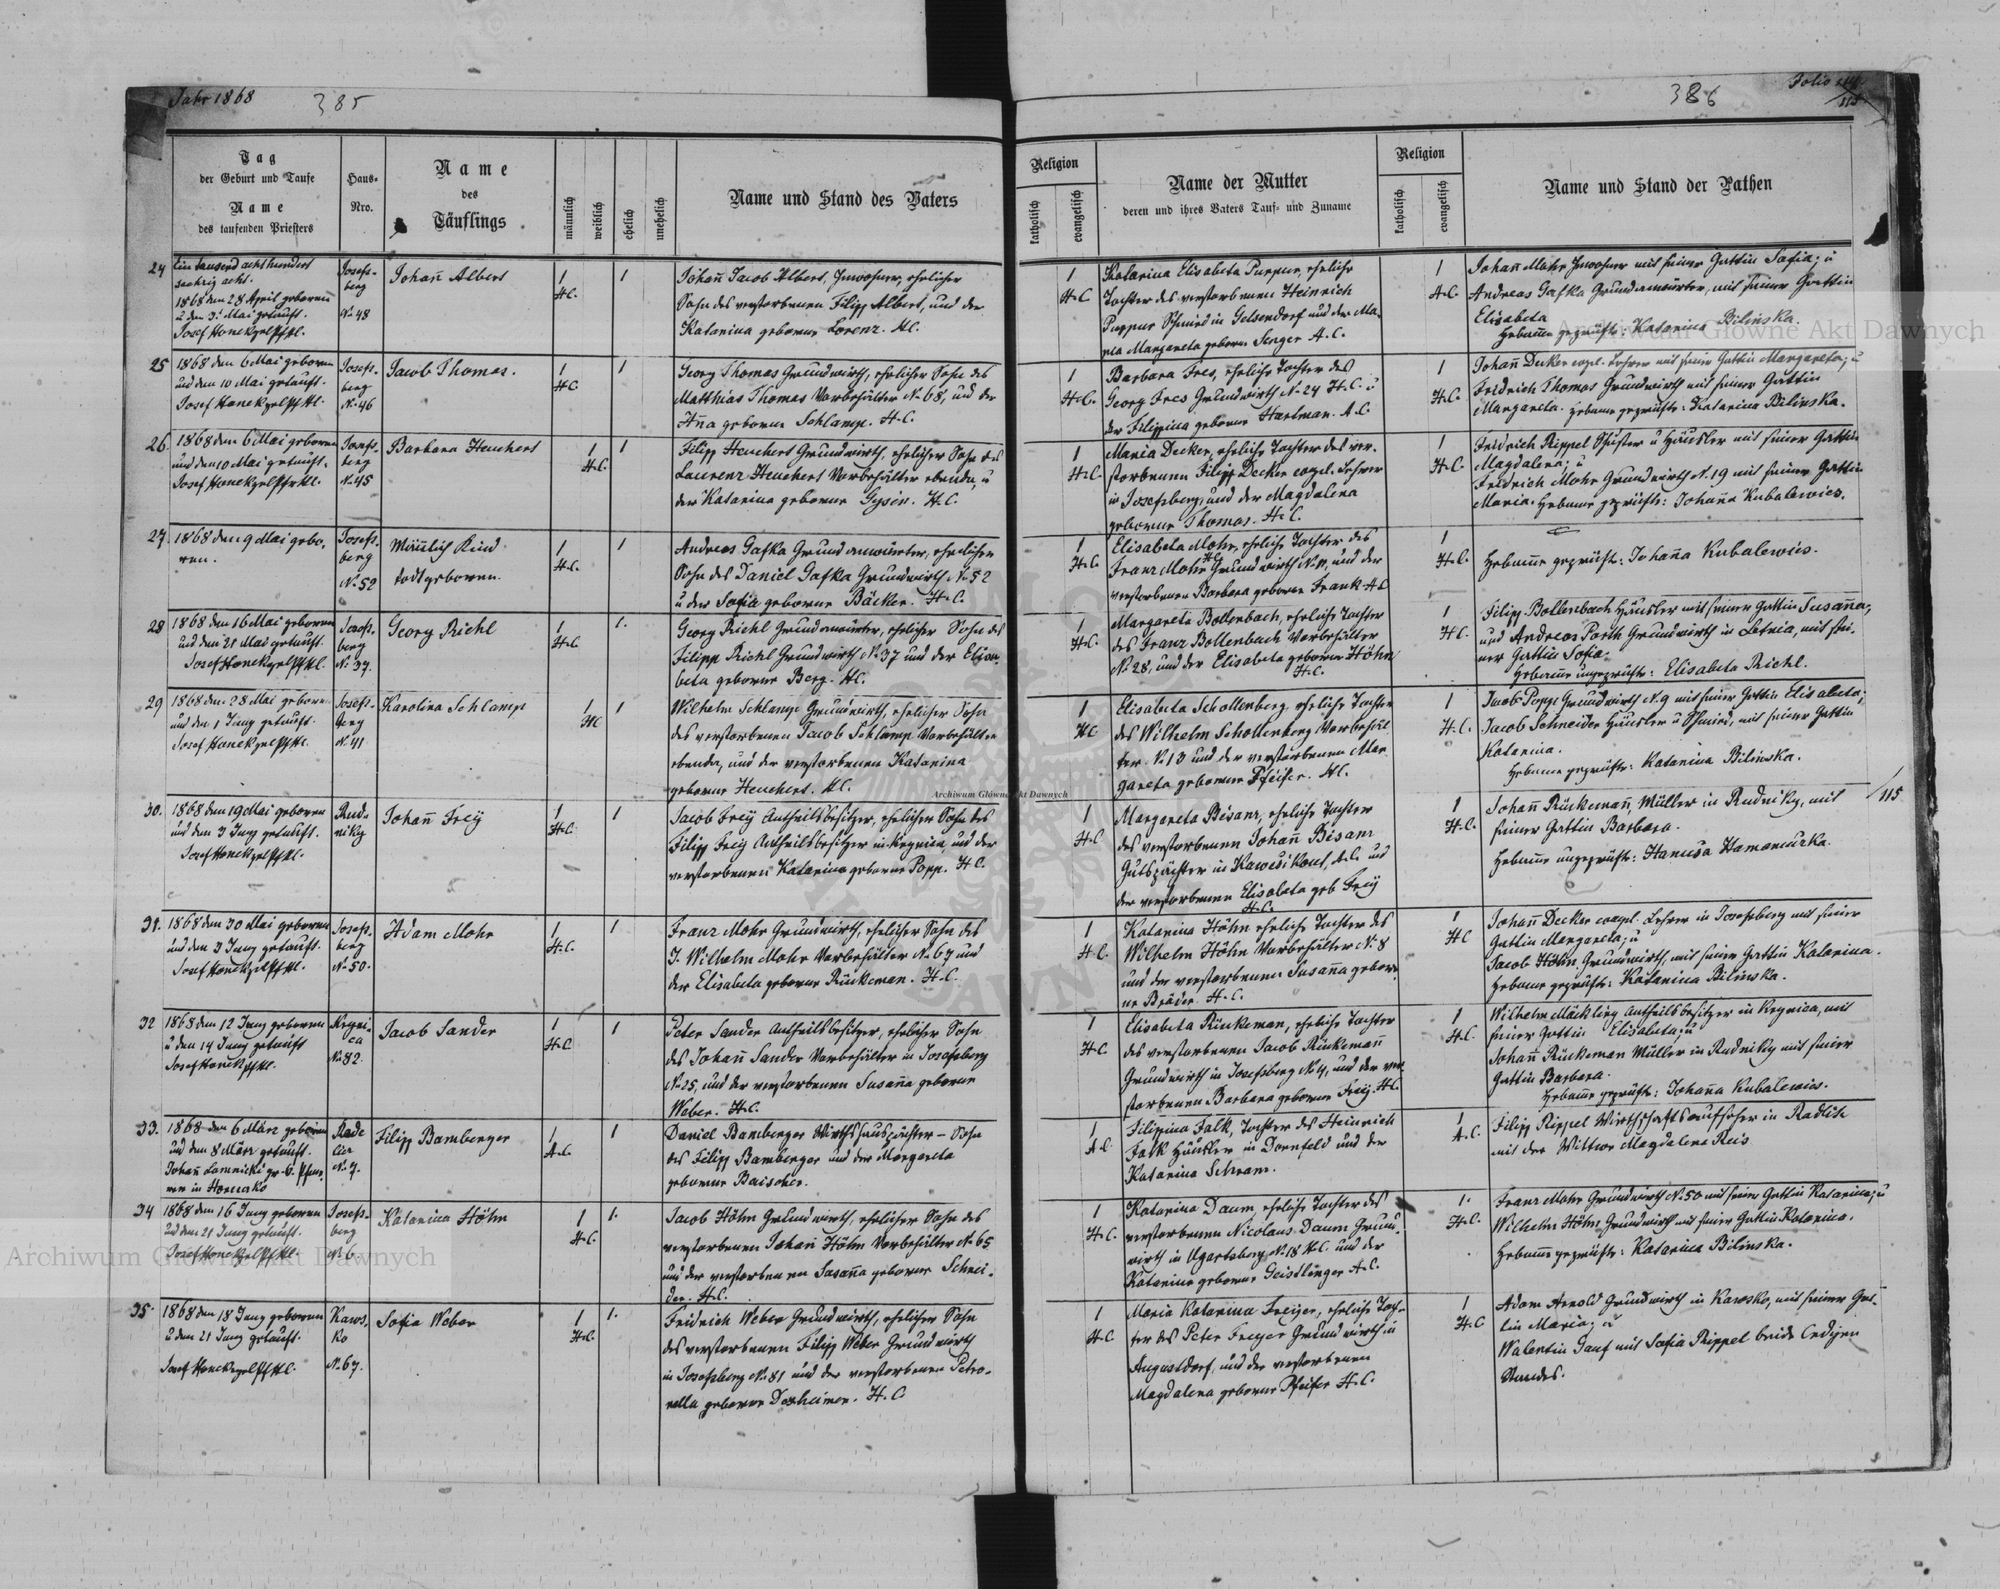 Jahr 1868
385
386
Folio
Tag
der Geburt und Taufe
Name
des taufenden Priesters
Haus-
Nro.
Name
des
Täuflings
männlich
weiblich
ehelich
unehelich
Name und Stand des Vaters
Religion
katholisch
evangelisch
Name der Mutter
deren und ihres Vaters Tauf- und Zuname
Religion
katholisch
evangelisch
Name und Stand der Pathen
24
Ein tausend acht hundert
sechzig acht.
1868 den 28 April geboren
u den 3t Mai getauft.
Josefs-
berg
No 48
Johañ Albert
1
H.C.
1
Johañ Jacob Albert, Inwohner, ehelicher
Sohn des verstorbenen Filipp Albert, und der
Katarina geborne Lorenz. H.C.
1
H.C
Katarina Elisabeta Puppur, eheliche
Tochter des verstorbenen Heinrich
Puppur Schmied in Gelsendorf und der Ma-
ria Margareta geborne Senger A.C.
1
A.C
Johañ Mohr Inwohner mit seiner Gattin Sofia; u
Andreas Gafka Grundanwärter, mit seiner Gattin
Elisabeta
Hebamme geprüfte: Katarina Bilinska.
25
1868 den 6 Mai geboren
und den 10 Mai getauft.
Josefs-
berg
No 46
Jacob Thomas.
1
H.C
1
Georg Thomas Grundwirth, ehelicher Sohn des
Matthias Thomas Vorbehälter No 68, und der
Añna geborne Schlamp. H.C.
1
H.C.
Barbara Fres, eheliche Tochter des
Georg Fres Grundwirth No 24 H.C. u
der Filippina geborne Hartman. A.C.
1
H.C.
Johañ Decker evgel. Lehrer mit seiner Gattin Margareta; u
Fridrich Thomas Grundwirth mit seiner Gattin
Margareta. Hebamme geprüfte: Katarina Bilinska.
26.
1868 den 6 Mai geboren
und den 10 Mai getauft.
Josefs-
berg
No 45
Barbara Heuchert
1
H.C.
1
Filipp Heuchert Grundwirth, ehelicher Sohn des
Laurenz Heuchert Vorbehälter ebenda, u
der Katarina geborne Gysin. H.C.
1
H.C
Maria Decker, eheliche Tochter des ver-
storbenen Filipp Decker evgel. Lehrer
in Josefsberg, und der Magdalena
geborne Thomas. H.C.
1
H.C.
Fridrich Rippel Schuster u Häusler mit seiner Gattin
Magdalena; u
Fridrich Mohr Grundwirth No 19 mit seiner Gattin
Maria. Hebamme geprüfte: Johaña Kubalewics.
27.
1868 den 9 Mai gebo-
ren.
Josefs-
berg
No 52
Mäñlich Kind
todtgeboren.
1
H.C.
1
Andreas Gafka Grundanwärter, ehelicher
Sohn des Daniel Gafka Grundwirth No 52
u der Sofia geborne Bäcker. H.C.
1
H.C.
Elisabeta Mohr, eheliche Tochter des
Franz Mohr Grundwirth No 11, und der
verstorbenen Barbara geborne Frank A.C
1
H.C.
Hebamme geprüft: Johaña Kubalewics.
28
1868 den 16 Mai geboren
und den 21 Mai getauft.
Josefs-
berg
No 37.
Georg Riehl
1
H.C.
1.
Georg Riehl Grundanwärter, ehelicher Sohn des
Filipp Riehl Grundwirth No 37 und der Elisa-
beta geborne Berg. H.C.
1
H.C.
Margareta Bollenbach, eheliche Tochter
des Franz Bollenbach Vorbehälter
No 28, und der Elisabeta geborne Höhn
H.C.
1
H.C.
Filipp Bollenbach Häusler mit seiner Gattin Susaña;
und Andreas Porth Grundwirth in Letnia, mit sei-
ner Gattin Sofia.
Hebamme ungeprüfte: Elisabeta Riehl.
29
1868 den 28 Mai geboren
und den 1 Juny getauft.
Josefs-
berg
No 41
Karolina Schlamp
1
H.C
1
Wilhelm Schlamp Grundwirth, ehelicher Sohn
des verstorbenen Jacob Schlamp Vorbehälter
ebenda, und der verstorbenen Katarina
geborne Heuchert. H.C.
1
H.C
Elisabeta Schollenberg eheliche Tochter
des Wilhelm Schollenberg Vorbehäl-
ter No 13 und der verstorbenen Mar-
gareta geborne Pfeifer. H.C.
1
H.C.
Jacob Popp Grundwirth No 9 mit seiner Gattin Elisabeta;
Jacob Schneider Häusler u Schmied, mit seiner Gattin
Katarina.
Hebamme geprüfte: Katarina Bilinska.
30.
1868 den 19 Mai geboren
und den 3 Juny getauft.
Rud-
niky
Johañ Freÿ
1
H.C.
1
Jacob Freÿ Antheilsbesitzer, ehelicher Sohn des
Filipp Freÿ Antheilsbesitzer in Krynica, und der
verstorbenen Katarina geborne Popp. H.C.
1
H.C
Margareta Bisanz, eheliche Tochter
des verstorbenen Johañ Bisanz
Gutspächter in A.C. und
der verstorbenen Elisabeta geb Freÿ
H.C.
1
H.C.
Johañ Rückemañ, Müller in Rudniky, mit
seiner Gattin Barbara.
Hebamme ungeprüfte: Hanusa Hamaniuzka.
115
31.
1868 den 30 Mai geboren
und den 3 Juny getauft.
Josefs-
berg
No 50.
Adam Mohr
1
H.C.
1
Franz Mohr Grundwirth, ehelicher Sohn des
J. Wilhelm Mohr Vorbehälter No 67 und
der Elisabeta geborne Rückeman. H.C.
1
H.C.
Katarina Höhn eheliche Tochter des
Wilhelm Höhn Vorbehälter No 8
und der verstorbenen Susaña gebor-
ne Bräder. H.C.
1
H.C
Johañ Decker evgel. Lehrer in Josefsberg mit seiner
Gattin Margareta; u
Jacob Höhn Grundwirth, mit seiner Gattin Katarina.
Hebamme geprüfte: Katarina Bilinska.
32
1868 den 12 Juny geboren
u den 14 Juny getauft
Kryni-
ca
No 82.
Jacob Sander
1
H.C
1
Peter Sander Antheilsbesitzer, ehelicher Sohn
des Johañ Sander Vorbehälter in Josefsberg
No 25, und der verstorbenen Susaña geborne
Weber. H.C.
1
H.C
Elisabeta Rückeman, eheliche Tochter
des verstorbenen Jacob Rückemañ
Grundwirth in Josefsberg No 4, und der ver-
storbenen Barbara geborne Freÿ. H.C
1
H.C.
Wilhelm Mäckling Antheilsbesitzer in Krynica, mit
seiner Gattin Elisabeta; u
Johañ Rückeman Müller in Rudniky mit seiner
Gattin Barbara.
Hebamme geprüfte: Johaña Kubalewics.
33.
1868 den 6 März geboren
und den 8 März getauft.
No 7.
Filipp Bamberger
1
A.C.
1
Daniel Bamberger Wirthshauspächter – Sohn
des Filipp Bamberger und der Margareta
geborne Baischer.
1
A.C
Filipina Falk, Tochter des Heinrich
Falk Häusler in Dornfeld und der
Katarina Schram.
1
A.C.
Filipp Rippel Wirthschaftsaufseher in Radlich
mit der Wittwe Magdalena Reis
34
1868 den 16 Juny geboren
und den 21 Juny getauft.
Josefs-
berg
No 6.
Katarina Höhn
1
H.C.
1.
Jacob Höhn Grundwirth, ehelicher Sohn des
verstorbenen Johañ Höhn Vorbehälter No 65
und der verstorbenen Susaña geborne Schnei-
der. H.C.
1
H.C.
Katarina Daum, eheliche Tochter des
verstorbenen Nicolaus Daum Grund-
wirth in Ugartsberg No 18 H.C. und der
Katarina geborne Geistlinger A.C.
1.
H.C.
Franz Mohr Grundwirth No 50 mit seiner Gattin Katarina; u
Wilhelm Höhn Grundwirth mit seiner Gattin Katarina.
Hebamme geprüfte: Katarina Bilinska.
35.
1868 den 18 Juny geboren
u den 21 Juny getauft.
Kaws-
ko
No 67.
Sofia Weber
1
H.C.
1.
Fridrich Weber Grundwirth, ehelicher Sohn
des verstorbenen Filipp Weber Grundwirth
in Josefsberg No 81 und der verstorbenen Petro-
nella geborne Dexheimer. H.C
1
H.C
Maria Katarina Freyer, eheliche Toch-
ter des Peter Freyer Grundwirth in
Augustdorf, und der verstorbenen
Magdalena geborne Pfeifer H.C.
1
H.C
Adam Arnold Grundwirth in Kawsko, mit seiner Gat-
tin Maria; u
Walentin Jauf mit Sofia Rippel beide ledigen
Standes.
Archiwum Główne Akt Dawnych
Archiwum Główne Akt Dawnych
Archiwum Główne Akt Dawnych